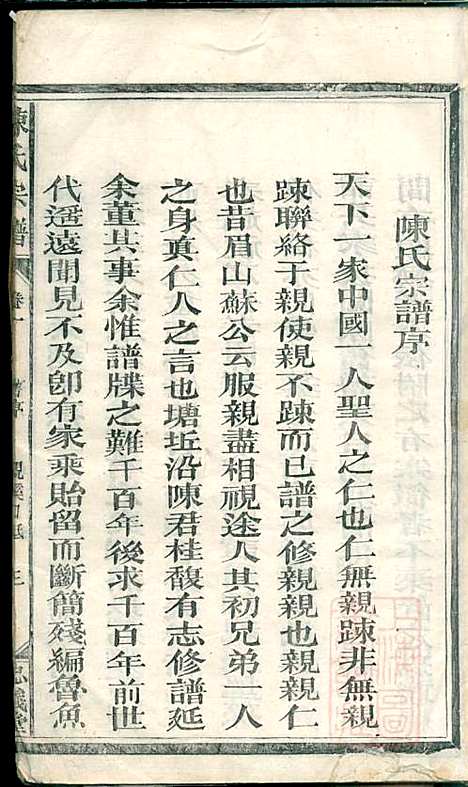 陳氏宗譜序
天下一家中國一人聖人之仁也仁無親踈非無親
踈聯絡于親使親不踈而已譜之修親親也親親仁
也昔眉山蘇公云服親盡相視途人其初兄弟一人
之身眞仁人之言也塘坵沿陳君桂馥有志修譜延
余董其事余惟譜牒之難千百年後求千百年前世
代遥遠聞見不及卽有家乘貽留而斷簡殘編魯魚
陳氏宗譜
卷一